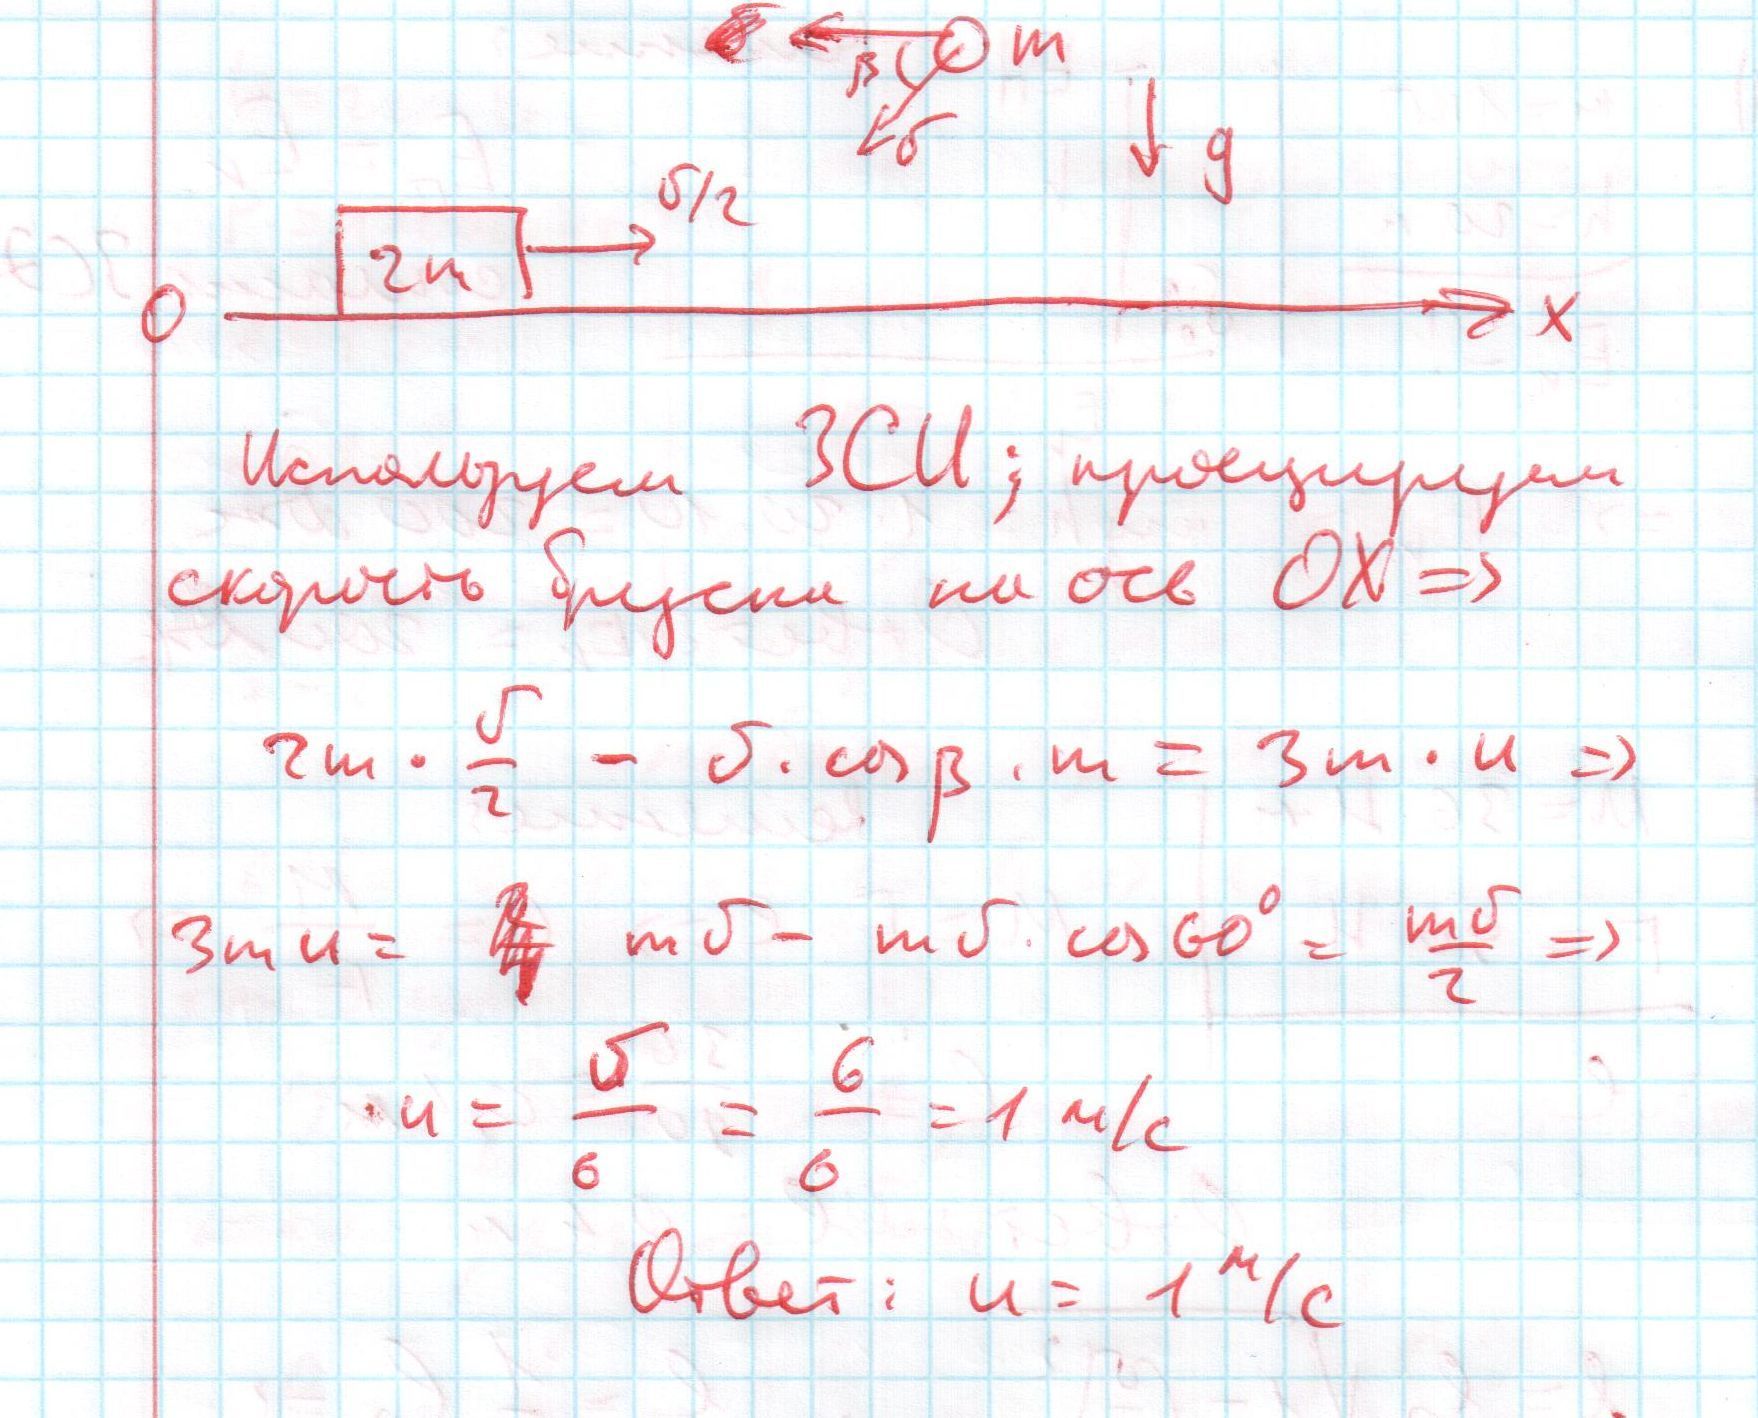 m
β
υ
g
υ/2
2m
O
x
Используем ЗСИ; проецируем
скорость бруска на ось OX =>
2m · υ/2 - υ · cos β · m = 3m · u =>
3mu = mυ - mυ · cos 60° = mυ/2 =>
u = υ/6 = 6/6 = 1 м/с
Ответ: u = 1 м/с